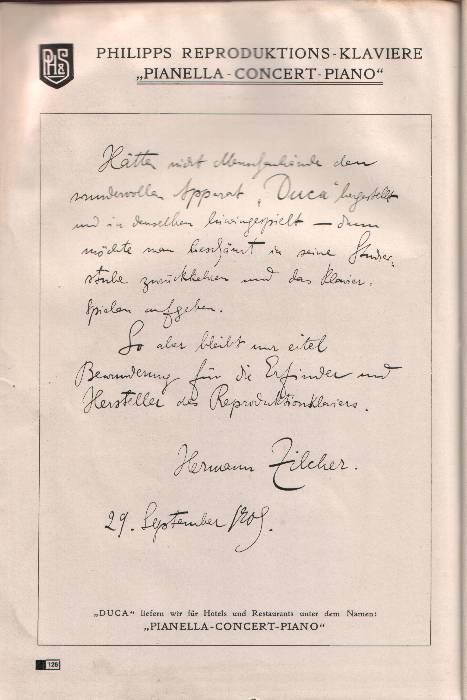 PH&S
PHILIPPS REPRODUKTIONS-KLAVIERE
„PIANELLA-CONCERT-PIANO“
Hätten nicht Menschenhände den
wundervollen Apparat „Duca“ hergestellt
und in denselben hineingespielt — dann
möchte man beschämt in seine Studier-
stube zurückkehren und das Klavier-
spielen aufgeben.
So aber bleibt nur eitel
Bewunderung für die Erfinder und
Hersteller des Reproduktionklaviers.
Hermann Zilcher.
29. September 1909.
„DUCA“ liefern wir für Hotels und Restaurants unter dem Namen:
„PIANELLA-CONCERT-PIANO“
126